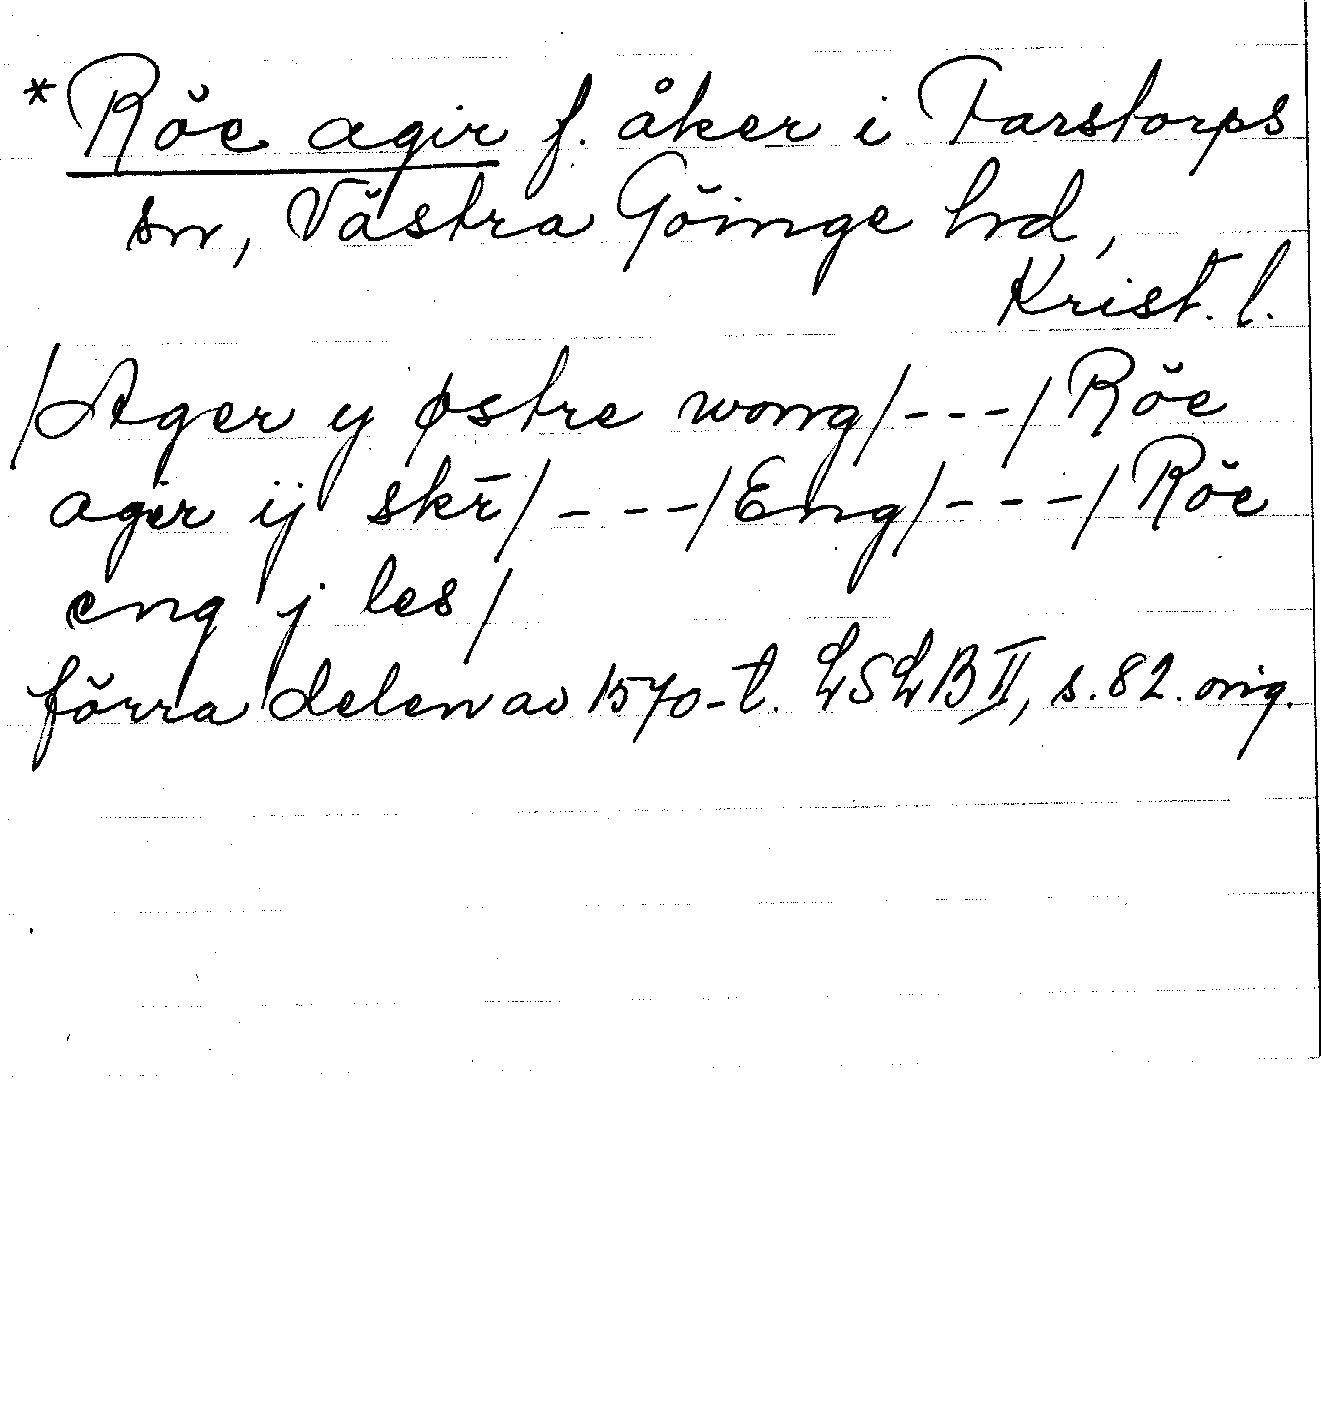 *Röe agir f. åker i Farstorps
sn, Västra Göinge hd,
Krist. l.
/Ager y østre wong/---/Röe
ager ij skr̄/---/Eng/---/Röe
eng j les/
förra delen av 1570-t. LSLB II, s. 82. orig.